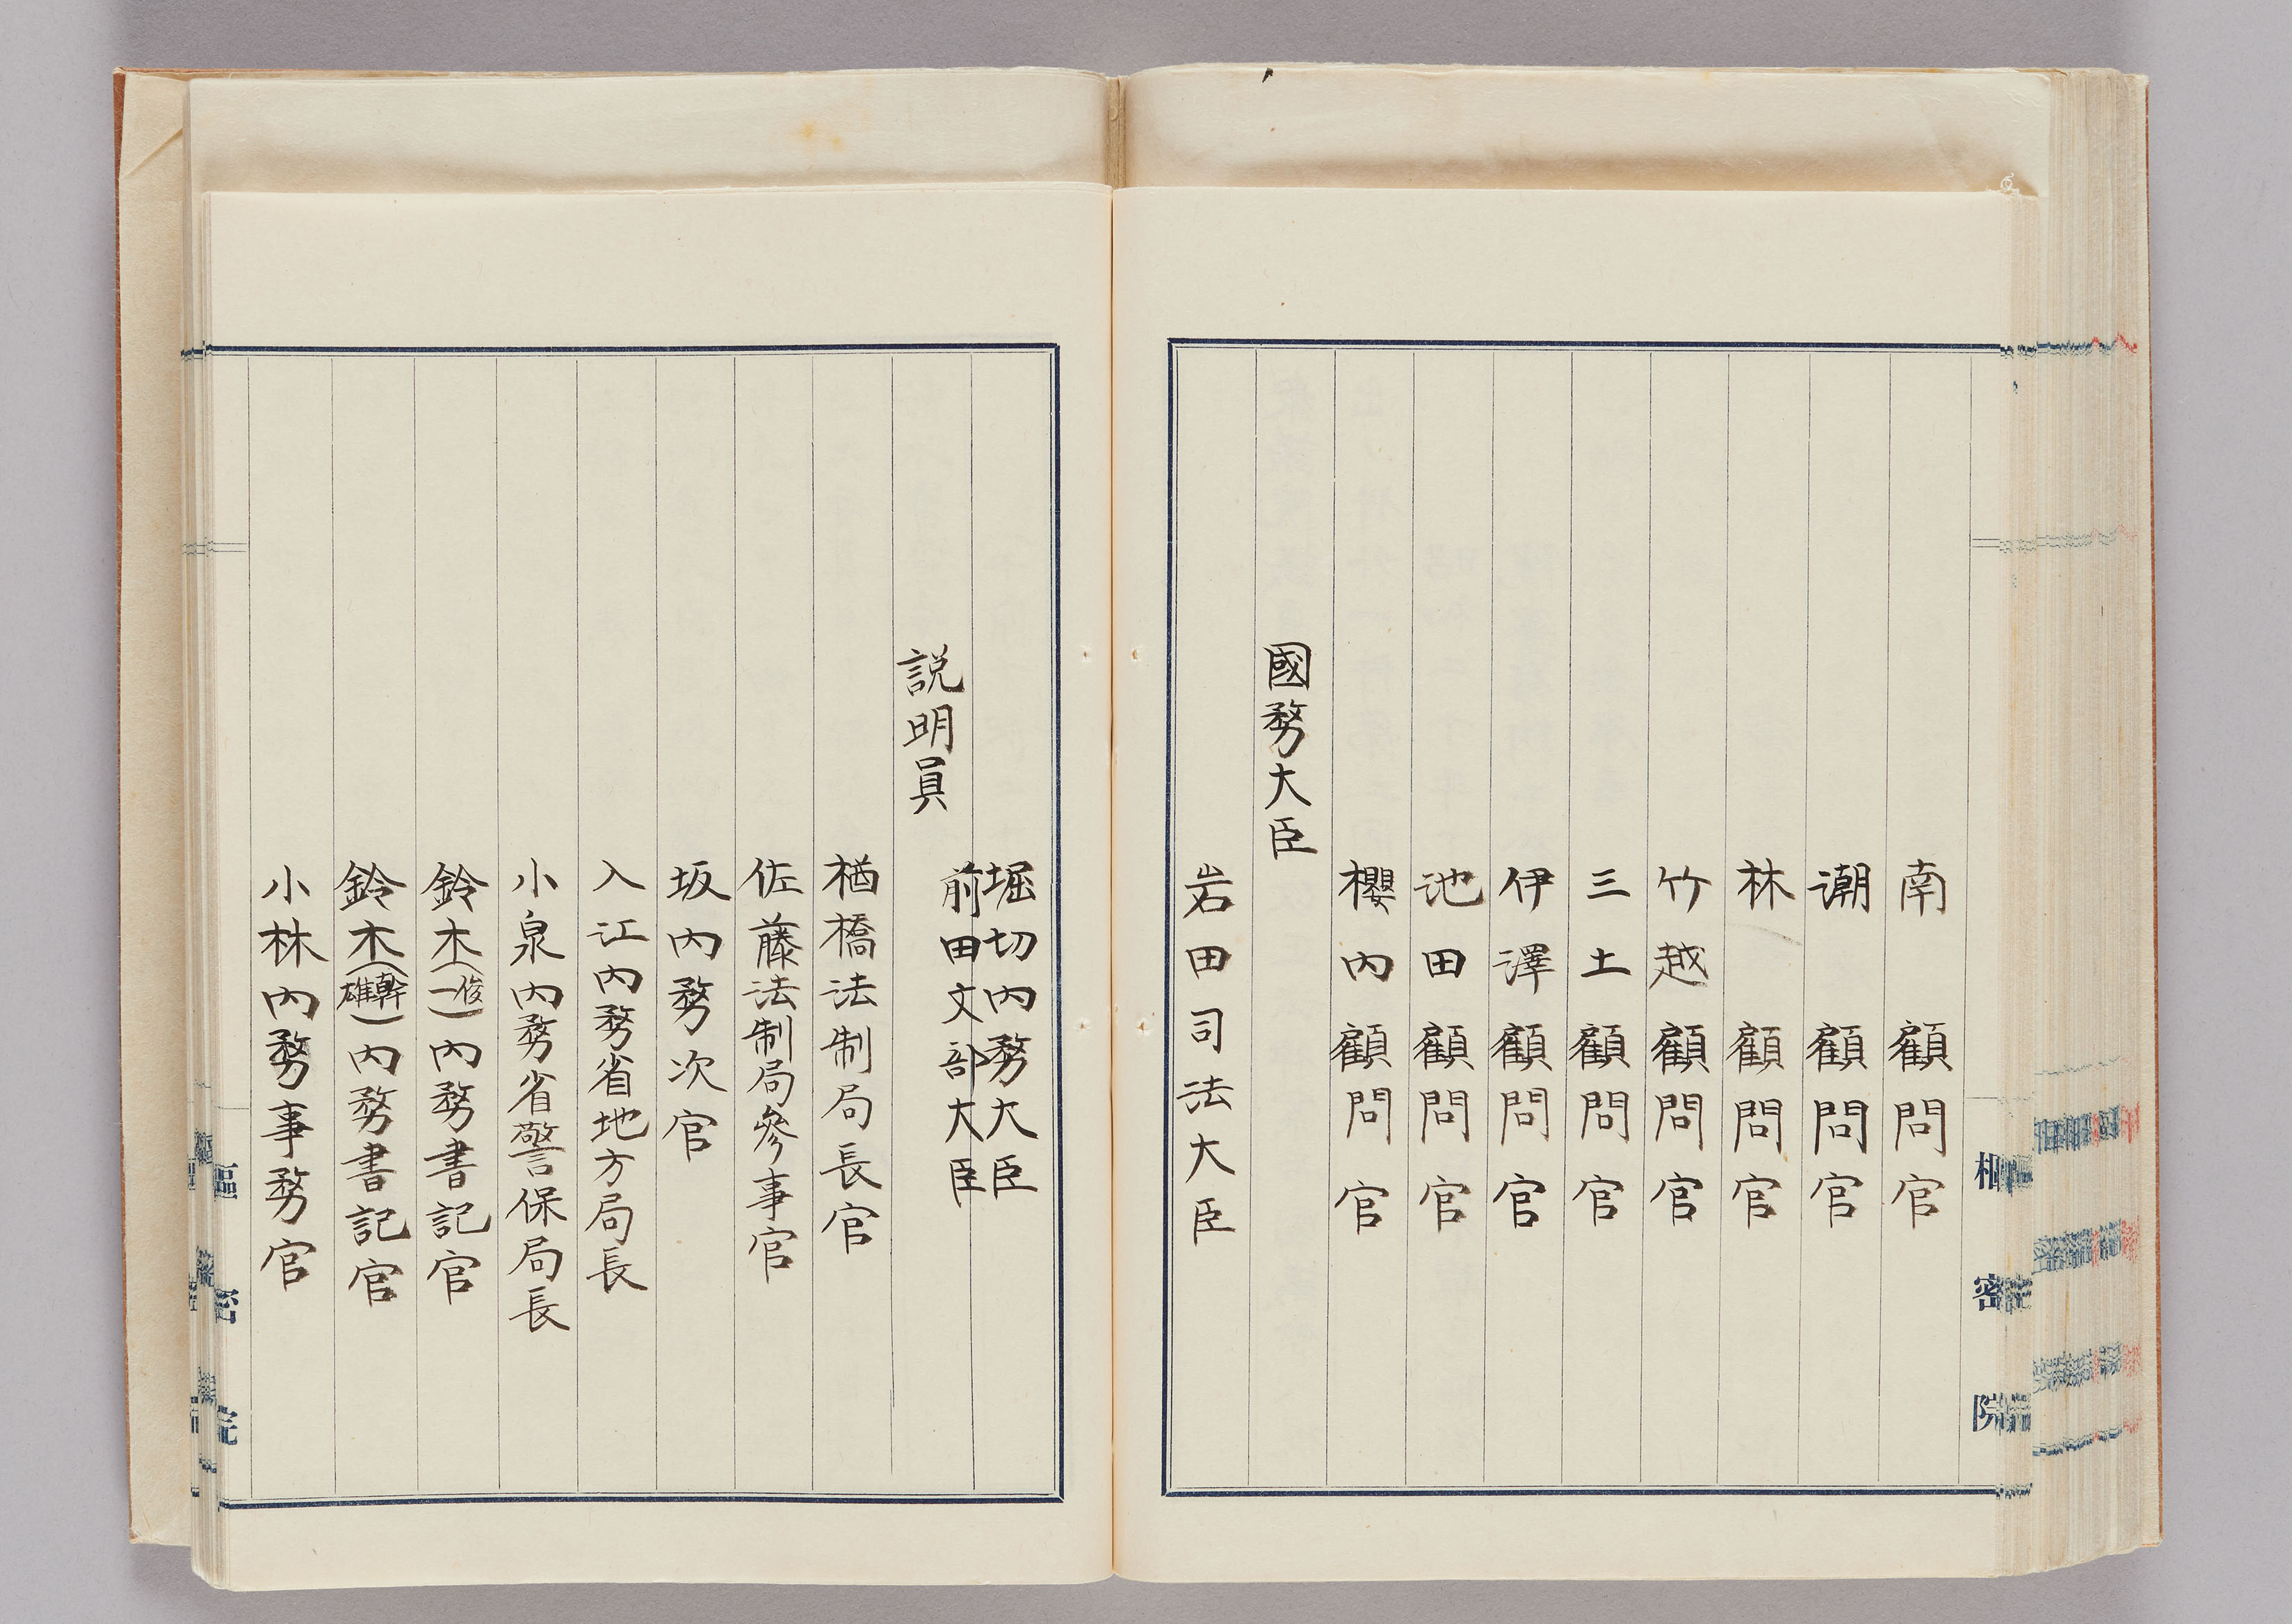 南顧問官
潮顧問官
林顧問官
竹越顧問官
三土顧問官
伊澤顧問官
池田顧問官
櫻内顧問官
國務大臣
岩田司法大臣
樞密院
堀切内務大臣
前田文部大臣
説明員
楢橋法制局長官
佐藤法制局參事官
坂内務次官
入江内務省地方局長
小泉内務省警保局長
鈴木(俊一)内務書記官
鈴木(幹雄)内務書記官
小林内務事務官
樞密院